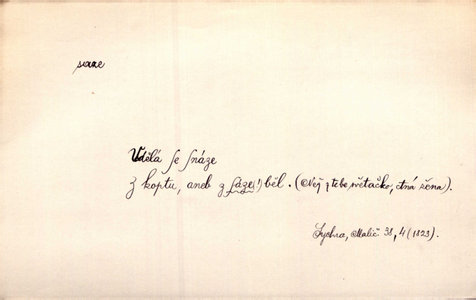 saze
Udělá se snáze
z koptu, aneb z sáze(!) běl. (Než z tebe světačko, ctná žena).
Sychra, Malič. 38, 4 (1823).